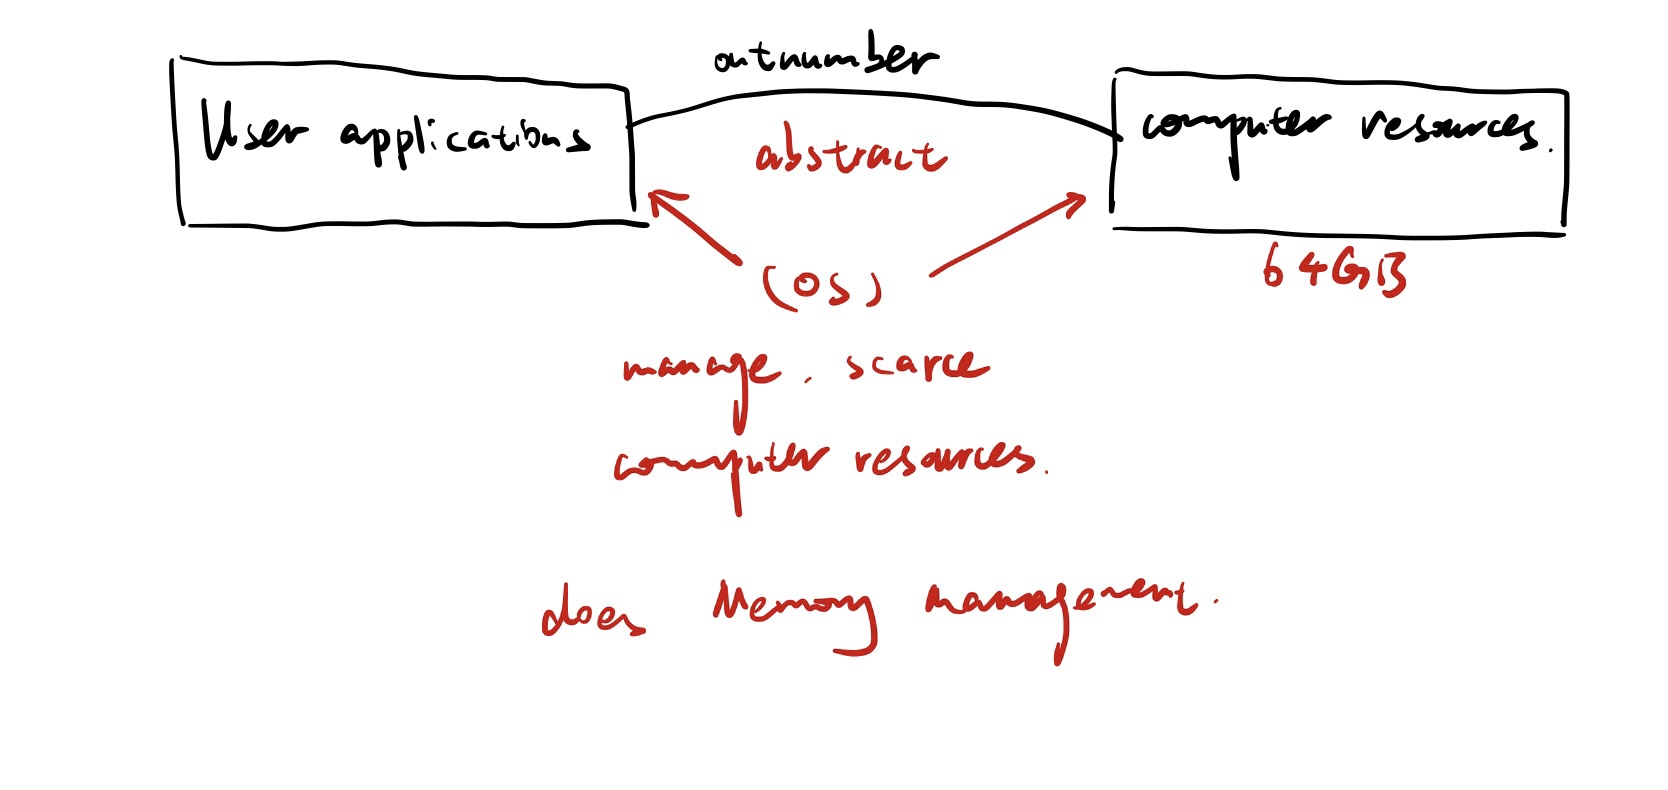 outnumber
User applications
computer resources.
abstract
64GB
(OS)
manage. scarce
computer resources.
does Memory management.